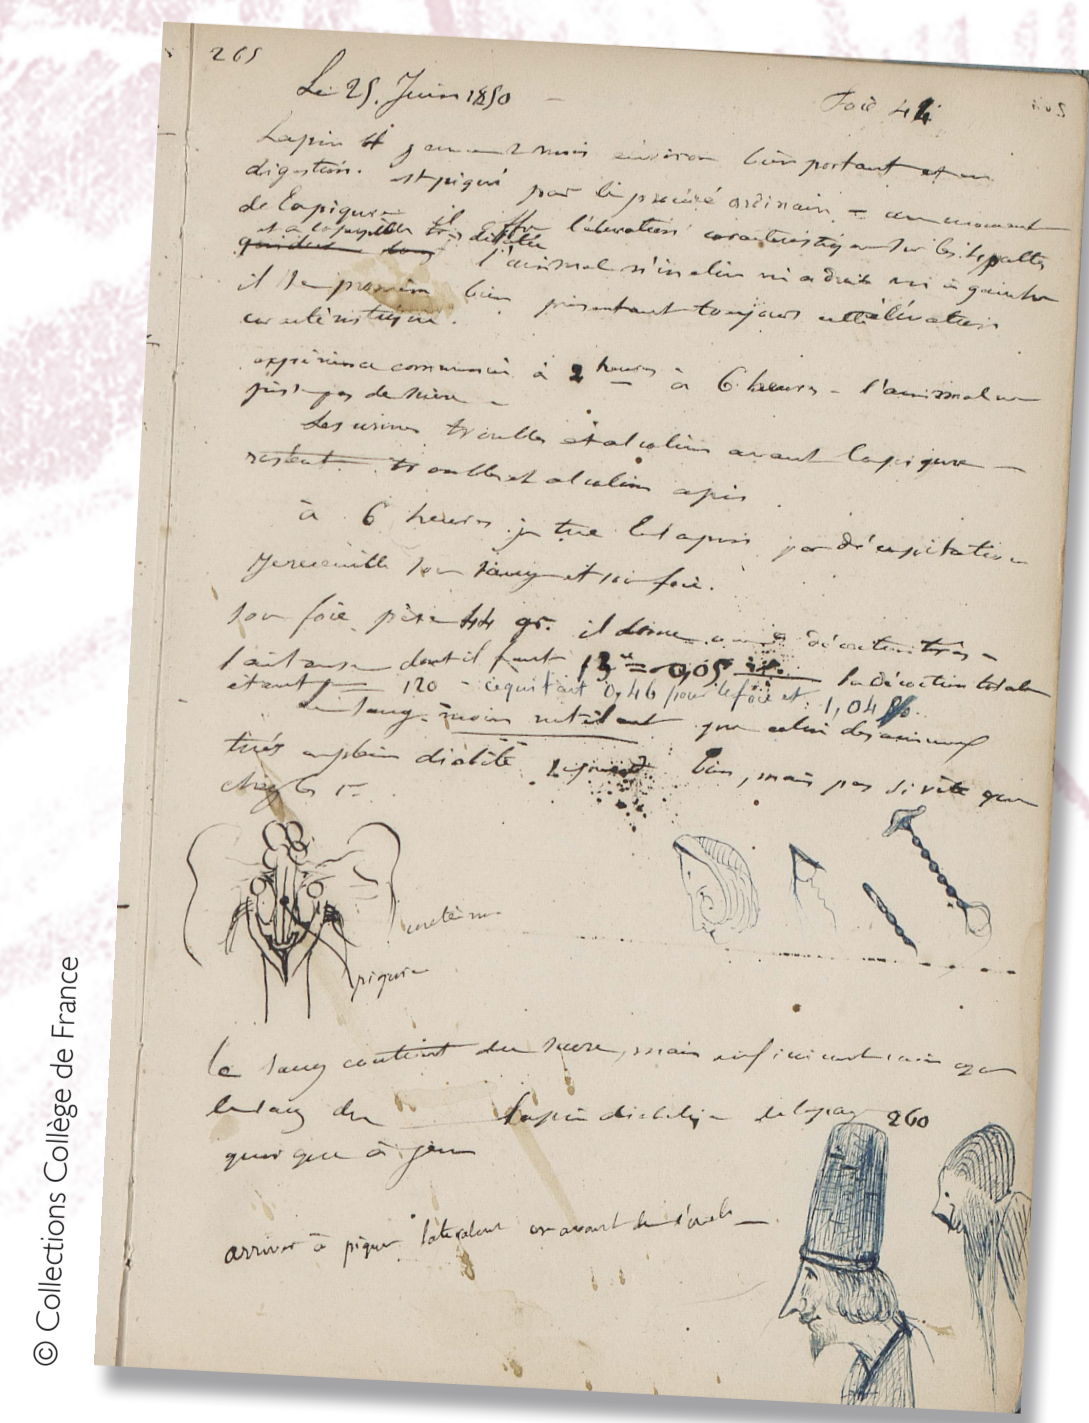 265
Le 25. Juin 1850 — Foie 44
Lapin jeune 2 mois environ bien portant et en
digestion. est piqué par le procédé ordinaire = au moment
de la piqure il offre l'élévation caractéristique sur les 4 pattes
et a la pupille très dilatée
l'animal n'incline ni a droite ni à gauche
il se promène bien présentant toujours cette élévation
caractéristique.
expérience commencée à 2 heures à 6 heures - l'animal ne
pisse pas de sucre -
Les urines troubles et alcalines avant la piqure —
restent troubles et alcalines après
à 6 heures je tue le lapin par décapitation
Je recueille son sang et son foie.
son foie pèse 44 gr. il donne une décoction très -
laiteuse dont il faut 13 = 0,05 la décoction totale
étant 120 - ce qui fait 0,46 pour le foie et 1,04 %.
Le sang moins rutilant que celui des animaux
tués en plein diabète bien, mais pas si vite que
chez les
piqure
le sang contient du sucre, mais infiniment moins que
le sang du lapin diabétique de la page 260
quoique à jeun
arriver à piquer en avant de